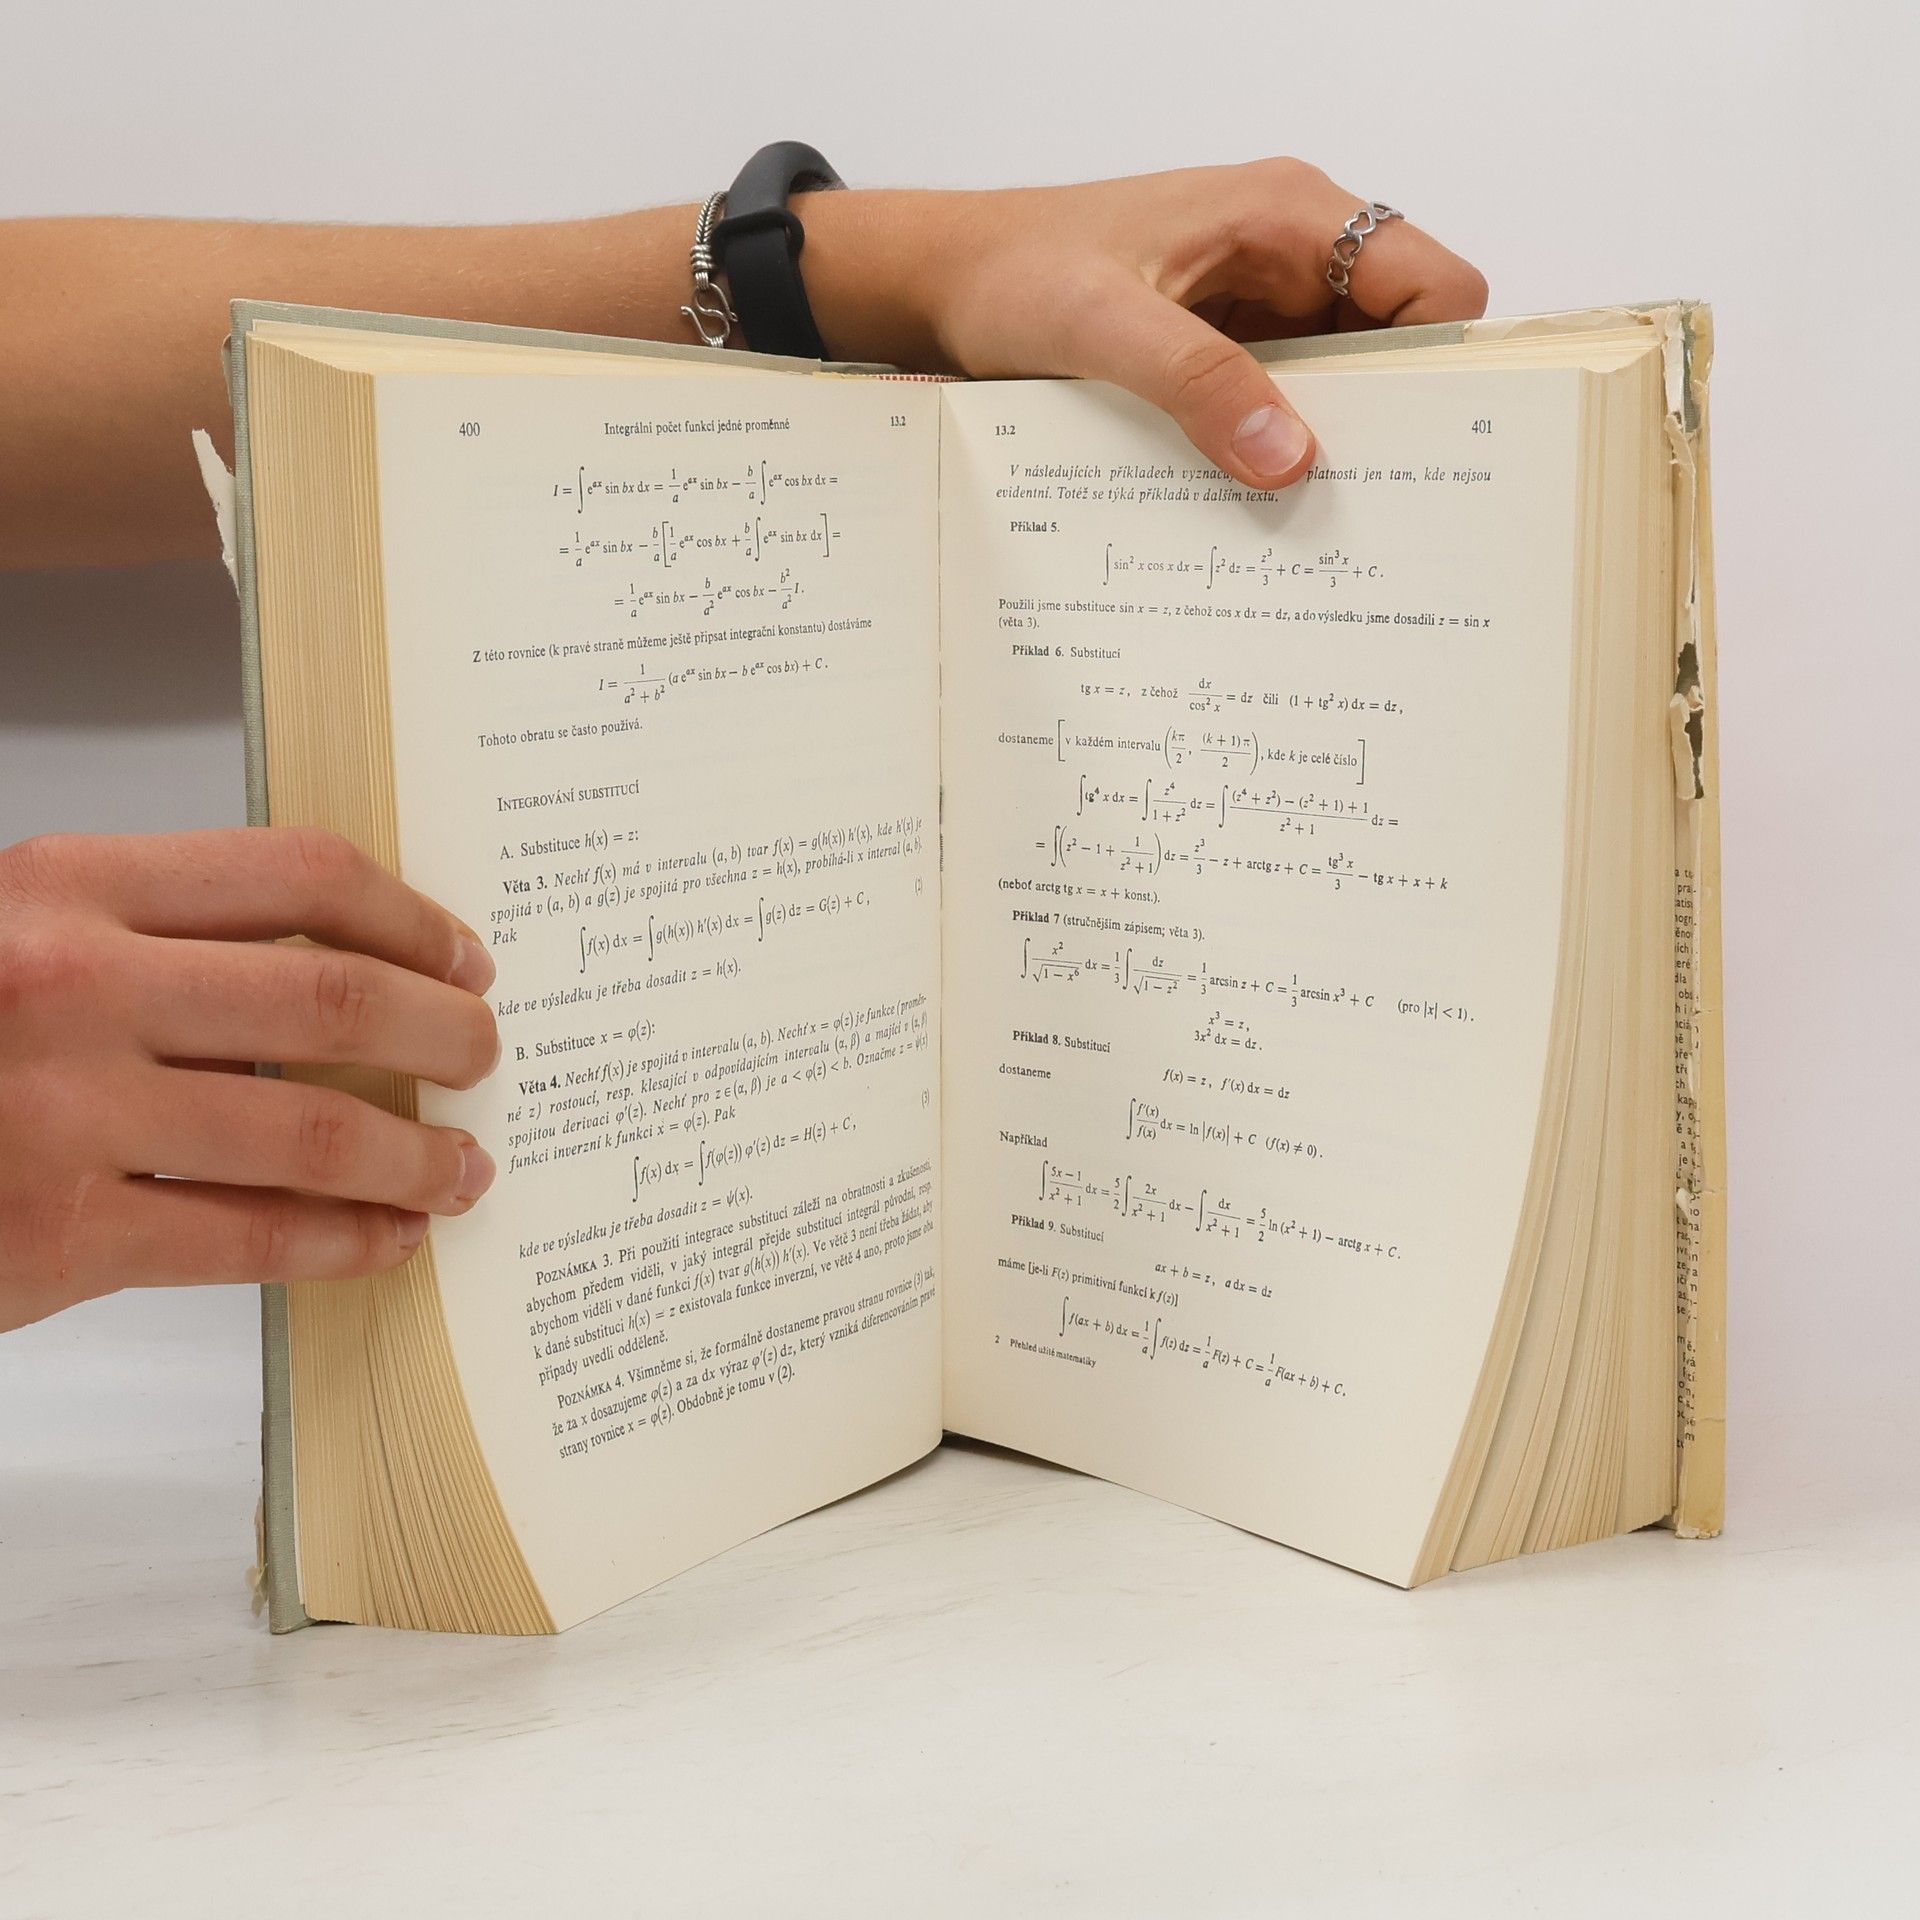 400 Integrální počet funkcí jedné proměnné 13.2
I = ∫ e^{ax} sin bx dx = \frac{1}{a} e^{ax} sin bx − \frac{b}{a} ∫ e^{ax} cos bx dx =
= \frac{1}{a} e^{ax} sin bx − \frac{b}{a} [ \frac{1}{a} e^{ax} cos bx + \frac{b}{a} ∫ e^{ax} sin bx dx ] =
= \frac{1}{a} e^{ax} sin bx − \frac{b}{a^2} e^{ax} cos bx − \frac{b^2}{a^2} I.
Z této rovnice (k pravé straně můžeme ještě připsat integrační konstantu) dostáváme
I = \frac{1}{a^2 + b^2} (a e^{ax} sin bx − b e^{ax} cos bx) + C.
Tohoto obratu se často používá.
INTEGROVÁNÍ SUBSTITUCÍ
A. Substituce h(x) = z:
Věta 3. Nechť f(x) má v intervalu (a, b) tvar f(x) = g(h(x)) h′(x), kde h′(x) je
spojitá v (a, b) a g(z) je spojitá pro všechna z = h(x), probíhá-li x interval (a, b).
Pak
∫ f(x) dx = ∫ g(h(x)) h′(x) dx = ∫ g(z) dz = G(z) + C, (2)
kde ve výsledku je třeba dosadit z = h(x).
B. Substituce x = φ(z):
Věta 4. Nechť f(x) je spojitá v intervalu (a, b). Nechť x = φ(z) je funkce (proměn-
né z) rostoucí, resp. klesající v odpovídajícím intervalu (α, β) a mající v (α, β)
spojitou derivaci φ′(z). Nechť pro z ∈ (α, β) je a < φ(z) < b. Označme z = ψ(x)
funkci inverzní k funkci x = φ(z). Pak
∫ f(x) dx = ∫ f(φ(z)) φ′(z) dz = H(z) + C, (3)
kde ve výsledku je třeba dosadit z = ψ(x).
POZNÁMKA 3. Při použití integrace substitucí záleží na obratnosti a zkušenosti,
abychom předem viděli, v jaký integrál přejde substitucí integrál původní, resp.
abychom viděli v dané funkci f(x) tvar g(h(x)) h′(x). Ve větě 3 není třeba žádat, aby
k dané substituci h(x) = z existovala funkce inverzní, ve větě 4 ano, proto jsme oba
případy uvedli odděleně.
POZNÁMKA 4. Všimněme si, že formálně dostaneme pravou stranu rovnice (3) tak,
že za x dosazujeme φ(z) a za dx výraz φ′(z) dz, který vzniká diferencováním pravé
strany rovnice x = φ(z). Obdobně je tomu v (2).
13.2 401
V následujících příkladech platnosti jen tam, kde nejsou
evidentní. Totéž se týká příkladů v dalším textu.
Příklad 5.
∫ sin² x cos x dx = ∫ z² dz = \frac{z^3}{3} + C = \frac{sin^3 x}{3} + C.
Použili jsme substituce sin x = z, z čehož cos x dx = dz, a do výsledku jsme dosadili z = sin x
(věta 3).
Příklad 6. Substitucí
tg x = z, z čehož \frac{dx}{cos^2 x} = dz čili (1 + tg² x) dx = dz,
dostaneme [ v každém intervalu ( \frac{kπ}{2}, \frac{(k + 1) π}{2} ), kde k je celé číslo ]
∫ tg⁴ x dx = ∫ \frac{z^4}{1 + z^2} dz = ∫ \frac{(z^4 + z^2) − (z^2 + 1) + 1}{z^2 + 1} dz =
= ∫ ( z² − 1 + \frac{1}{z^2 + 1} ) dz = \frac{z^3}{3} − z + arctg z + C = \frac{tg^3 x}{3} − tg x + x + k
(neboť arctg tg x = x + konst.).
Příklad 7 (stručnějším zápisem; věta 3).
∫ \frac{x^2}{\sqrt{1 − x^6}} dx = \frac{1}{3} ∫ \frac{dz}{\sqrt{1 − z^2}} = \frac{1}{3} arcsin z + C = \frac{1}{3} arcsin x³ + C (pro |x| < 1).
x³ = z,
3x² dx = dz.
Příklad 8. Substitucí
f(x) = z, f′(x) dx = dz
dostaneme
∫ \frac{f′(x)}{f(x)} dx = ln |f(x)| + C (f(x) ≠ 0).
Například
∫ \frac{5x − 1}{x^2 + 1} dx = \frac{5}{2} ∫ \frac{2x}{x^2 + 1} dx − ∫ \frac{dx}{x^2 + 1} = \frac{5}{2} ln (x² + 1) − arctg x + C.
Příklad 9. Substitucí
ax + b = z, a dx = dz
máme [je-li F(z) primitivní funkcí k f(z)]
∫ f(ax + b) dx = \frac{1}{a} ∫ f(z) dz = \frac{1}{a} F(z) + C = \frac{1}{a} F(ax + b) + C,
2 Přehled užité matematiky